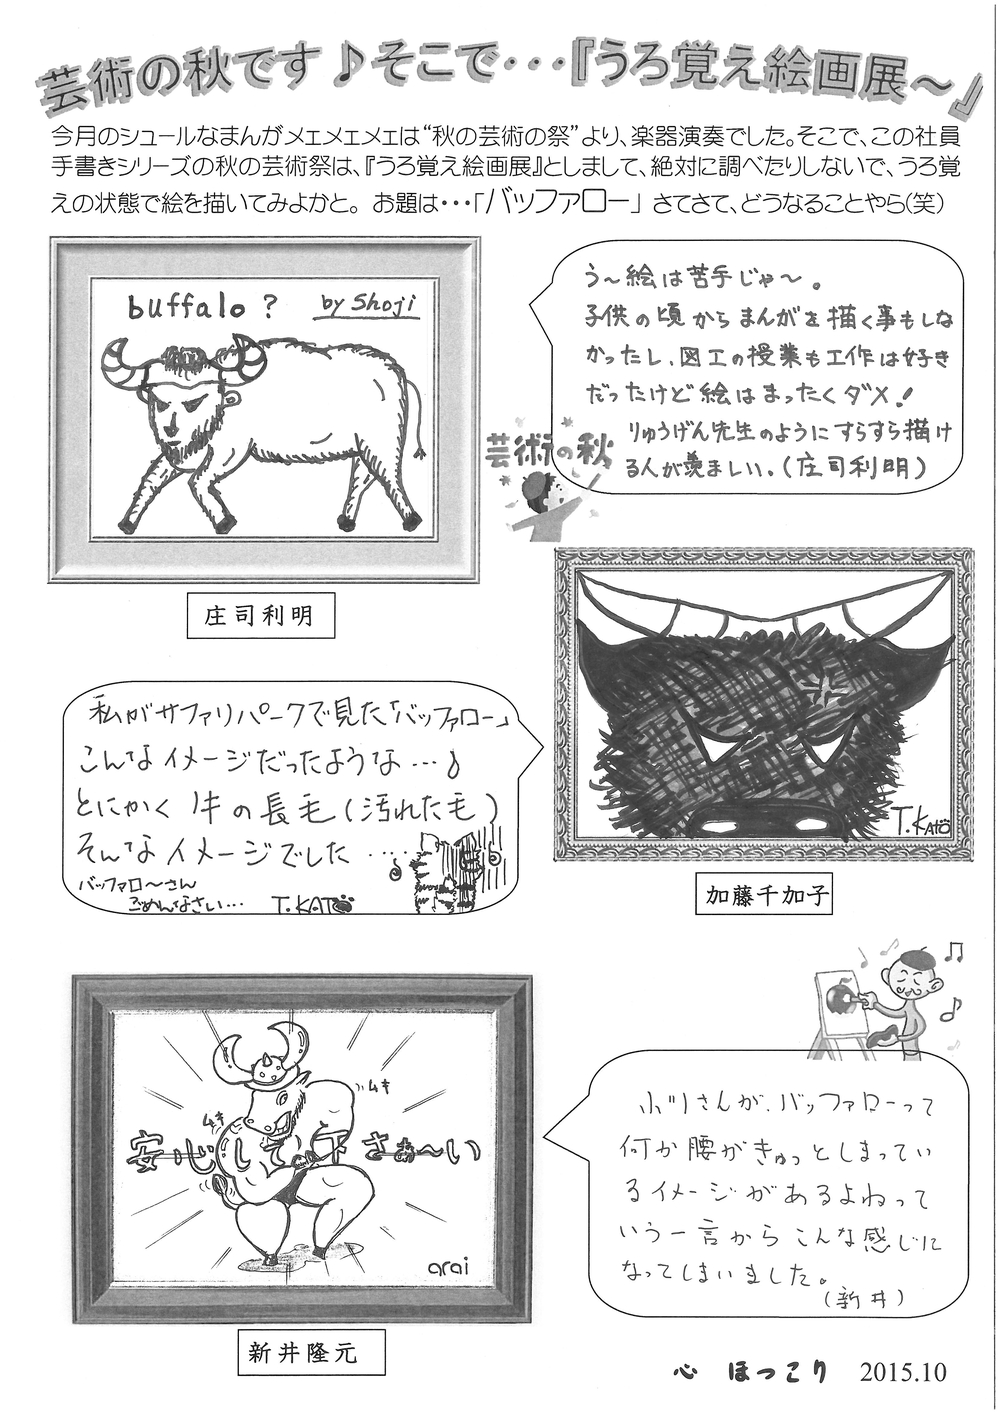 芸術の秋です♪そこで・・・『うろ覚え絵画展～』
今月のシュールなまんがメェメェメェは“秋の芸術の祭”より、楽器演奏でした。そこで、この社員
手書きシリーズの秋の芸術祭は、『うろ覚え絵画展』としまして、絶対に調べたりしないで、うろ覚
えの状態で絵を描いてみよかと。 お題は・・・「バッファロー」 さてさて、どうなることやら(笑)
buffalo ? by Shoji
庄司利明
う～絵は苦手じゃ～。
子供の頃からまんがを描く事もしな
かったし、図工の授業も工作は好き
だったけど絵はまったくダメ!
りゅうげん先生のようにすらすら描け
る人が羨ましい。(庄司利明)
芸術の秋
T.KATO
加藤千加子
私がサファリパークで見た「バッファロー」
こんなイメージだったような…♪
とにかく 牛の長毛(汚れた毛)
そんなイメージでした ‥‥
バッファロ～さん
ごめんなさい…
T.KATO
ムキ
ムキ
安心して下さぁ～い
arai
新井隆元
ふりさんが、バッファローって
何か腰がきゅっとしまってい
るイメージがあるよねって
いう一言からこんな感じに
なってしまいました。
(新井)
心 ほっこり 2015.10